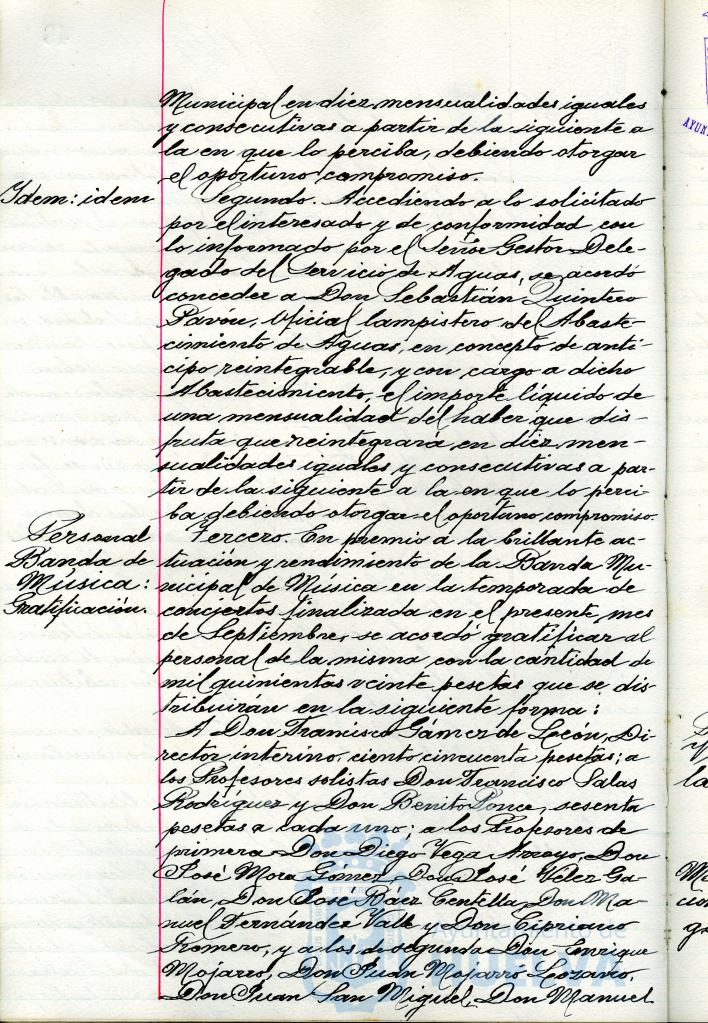 Municipal en diez mensualidades iguales
y consecutivas a partir de la siguiente a
la en que lo perciba, debiendo otorgar
el oportuno compromiso.
Idem: idem
Segundo. Accediendo a lo solicitado
por el interesado y de conformidad con
lo informado por el Señor Gestor Dele-
gado del Servicio de Aguas, se acordó
conceder a Don Sebastián Quintero
Pavón, Oficial lampistero del Abaste-
cimiento de Aguas, en concepto de anti-
cipo reintegrable, y con cargo a dicho
Abastecimiento, el importe líquido de
una mensualidad del haber que dis-
fruta que reintegrará en diez men-
sualidades iguales y consecutivas a par-
tir de la siguiente a la en que lo perci-
ba debiendo otorgar el oportuno compromiso.
Personal
Banda de
Música:
Gratificación.
Tercero. En premio a la brillante ac-
tuación y rendimiento de la Banda Mu-
nicipal de Música en la temporada de
conciertos finalizada en el presente mes
de Septiembre, se acordó gratificar al
personal de la misma con la cantidad de
mil quinientas veinte pesetas que se dis-
tribuirán en la siguiente forma:
A Don Francisco Gámez de León, Di-
rector interino, ciento cincuenta pesetas; a
los Profesores solistas Don Francisco Salas
Rodríguez y Don Benito Ponce, sesenta
pesetas a cada uno; a los Profesores de
primera Don Diego Vega Arroyo, Don
José Mora Gómez, Don José Velez Ga-
lán, Don José Báez Centella, Don Ma-
nuel Fernández Valle y Don Cipriano
Romero, y a los de segunda Don Enrique
Mojarro, Don Juan Mojarro Lozano,
Don Juan San Miguel, Don Manuel
Ayuntamiento de
HUELVA